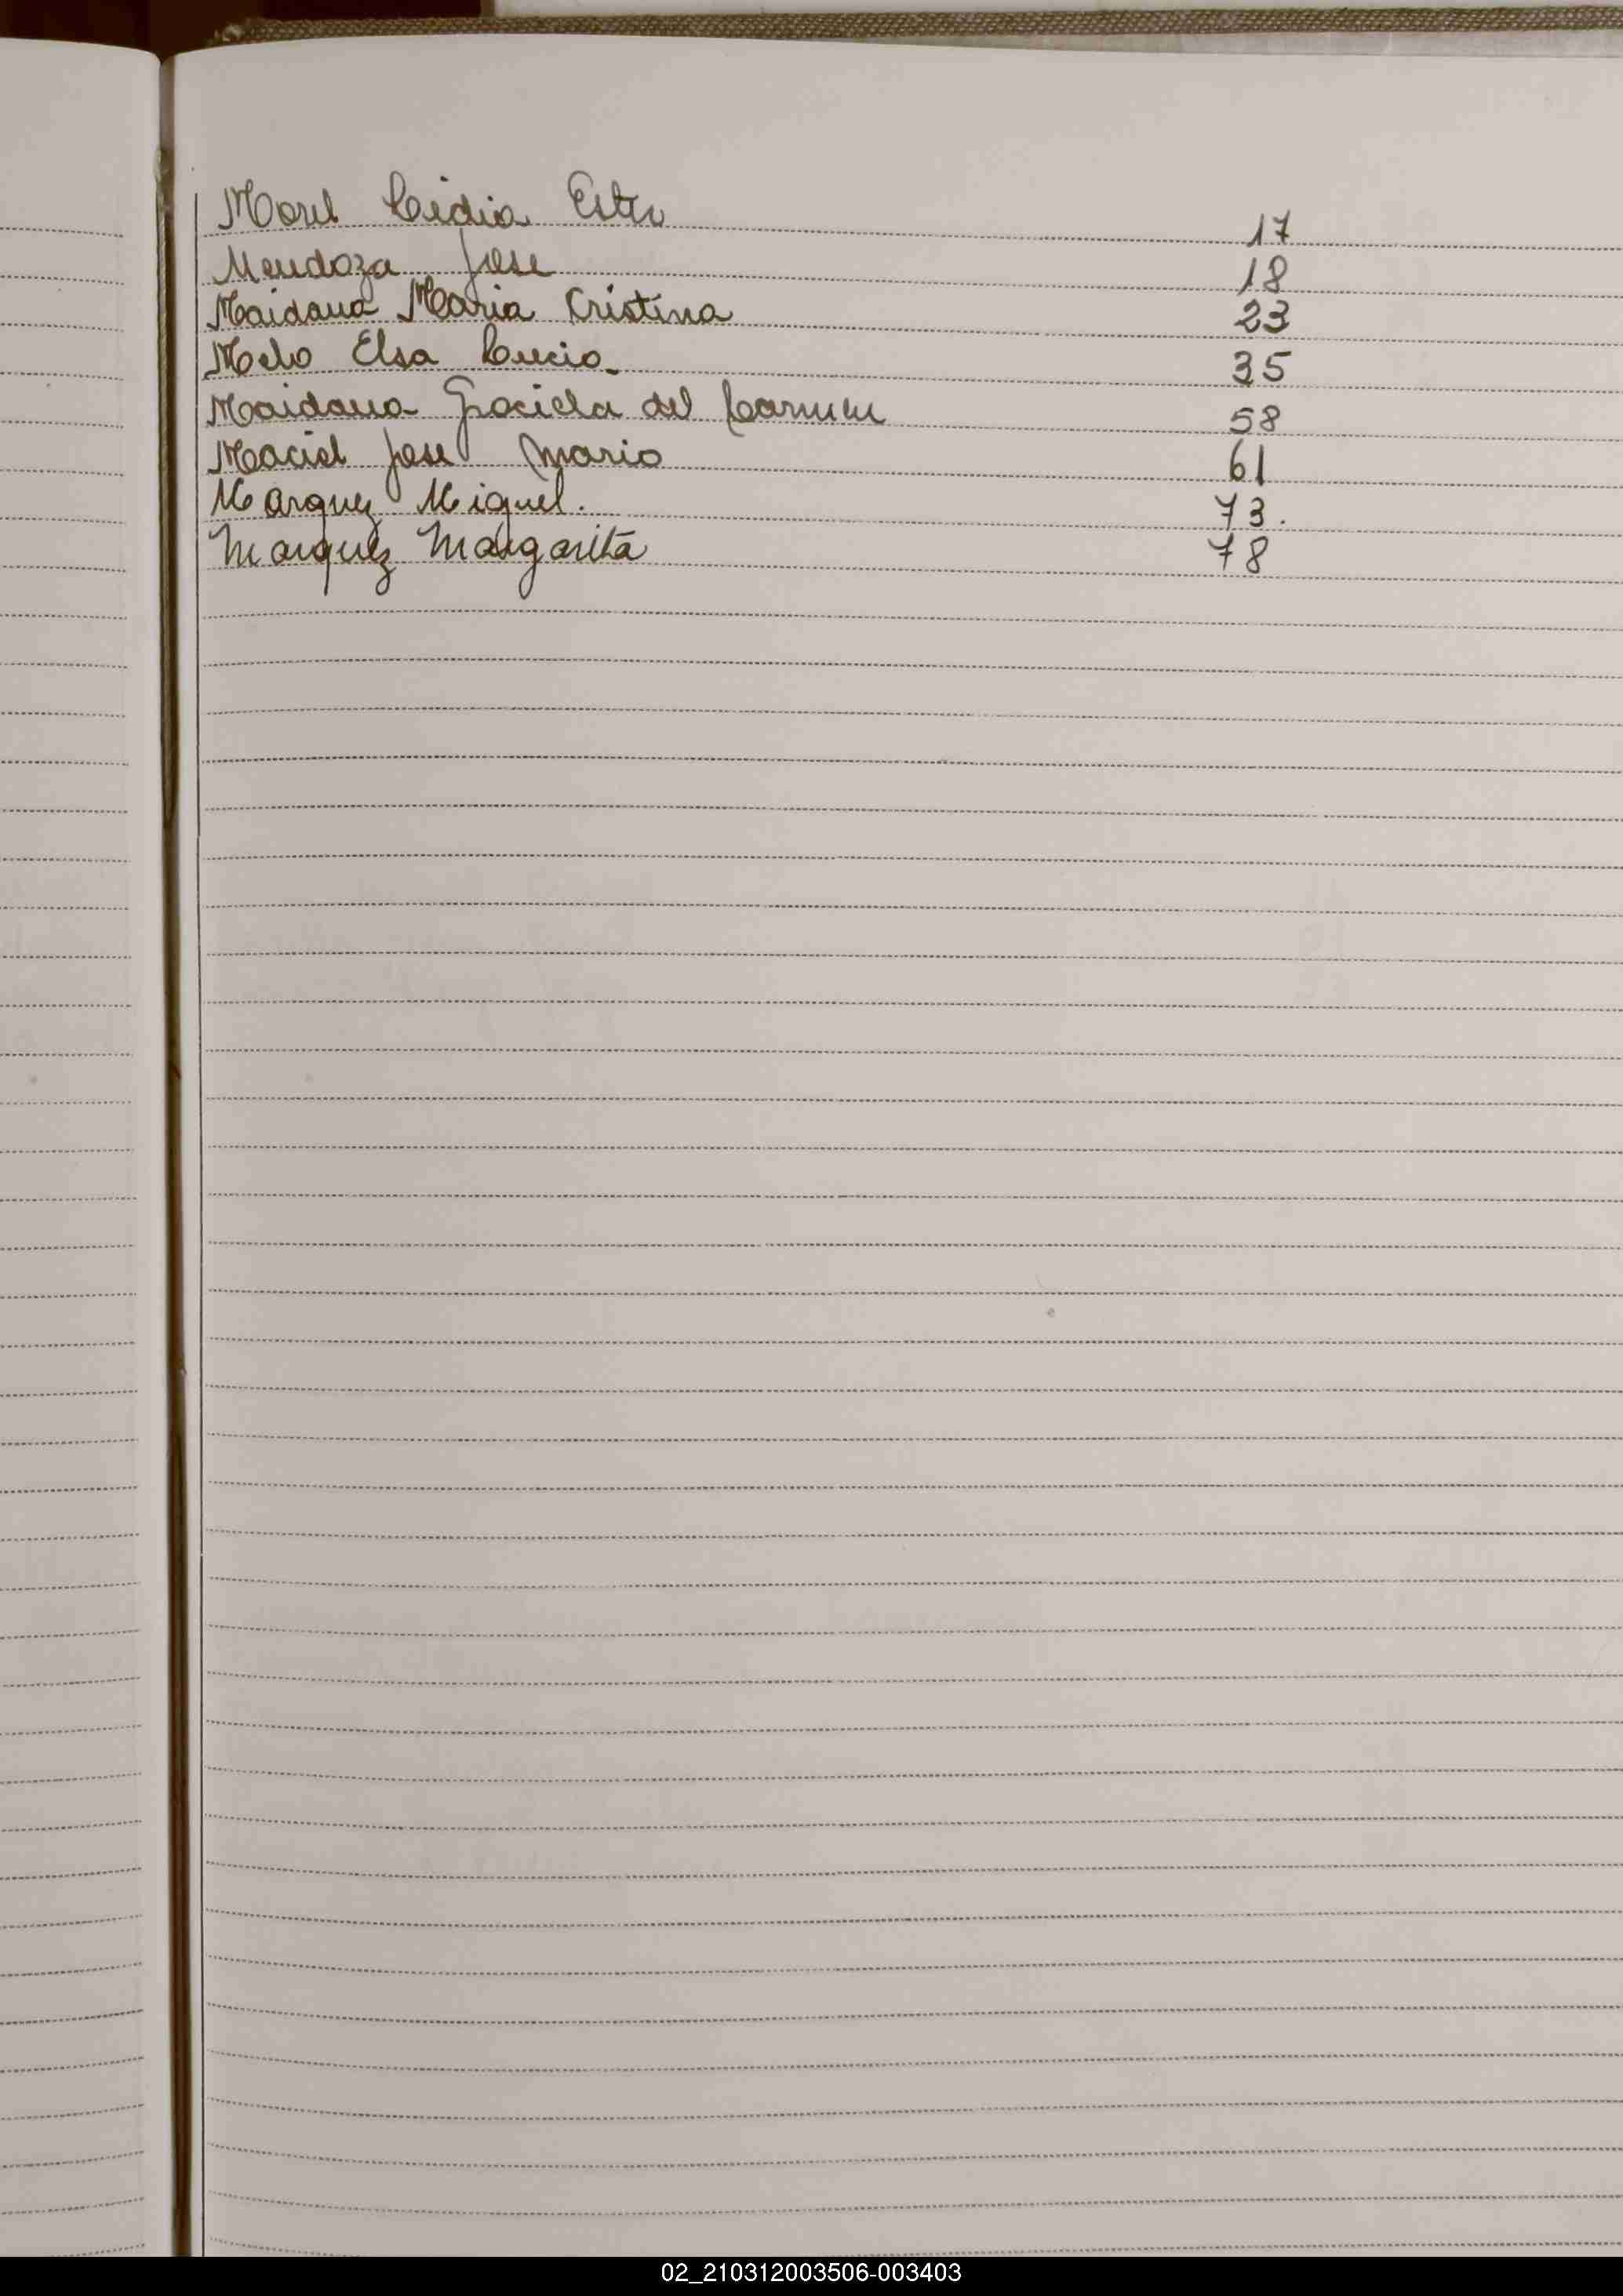 Morel Lidia Ester 17
Mendoza Jose 18
Maidana Maria Cristina 23
Melo Elsa Lucia 35
Maidana Graciela del Carmen 58
Maciel Jose Mario 61
Marquez Miguel. 73.
Marquez Margarita 78
02_210312003506-003403